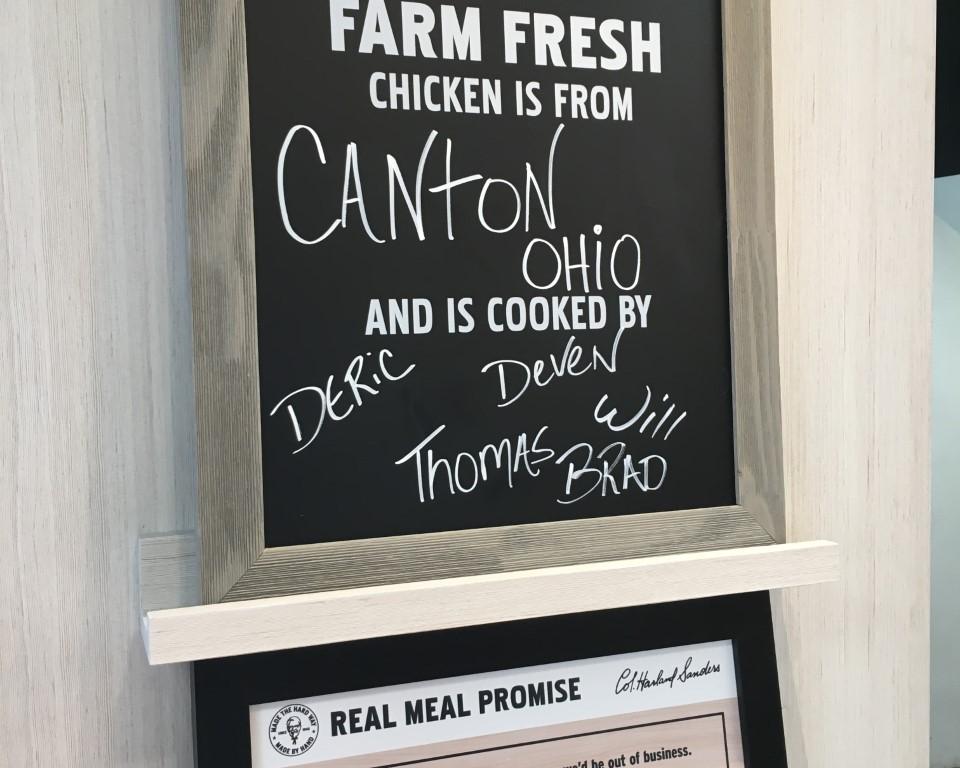 FARM FRESH
CHICKEN IS FROM
CANtON
OHiO
AND IS COOKED BY
DERiC
DeVeN
Will
THOMAS
BRAD
Col. Harland Sanders
REAL MEAL PROMISE
MADE THE HARD WAY
MADE BY HAND
we'd be out of business.